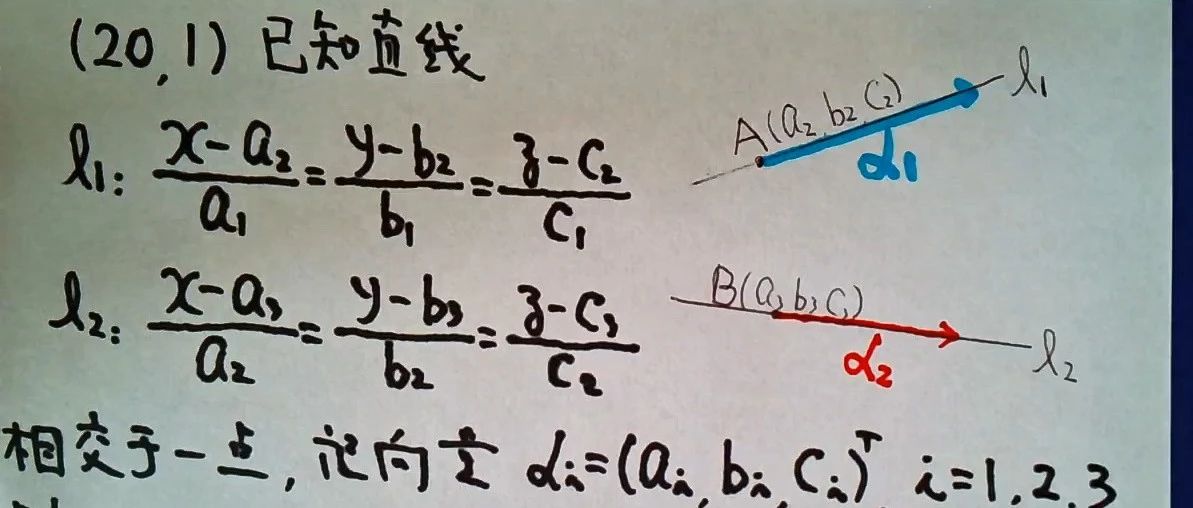 (20,1) 已知直线
l₁: (x-a₂)/a₁ = (y-b₂)/b₁ = (z-c₂)/c₁
A(a₂,b₂,c₂)
α₁
l₁
l₂: (x-a₃)/a₂ = (y-b₃)/b₂ = (z-c₃)/c₂
B(a₃b₃c₃)
α₂
l₂
相交于一点, 记向量 αᵢ=(aᵢ,bᵢ,cᵢ)ᵀ i=1,2,3